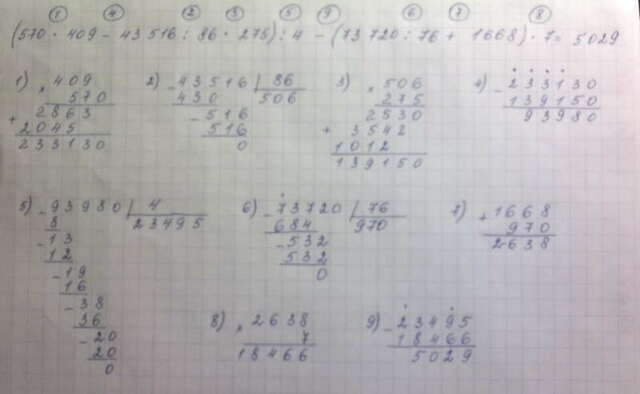 ① ④ ② ③ ⑤ ⑨ ⑥ ⑦ ⑧
(570 · 409 - 43516 : 86 · 275) : 4 - (73720 : 76 + 1668) · 7 = 5029
1) × 409
570
+ 2863
2045
233130
2) - 43516 | 86
430 506
- 516
516
0
3) × 506
275
2530
+ 3542
1012
139150
4) - 233130
139150
93980
5) - 93980 | 4
8 23495
- 13
12
- 19
16
- 38
36
- 20
20
0
6) - 73720 | 76
684 970
- 532
532
0
7) + 1668
970
2638
8) × 2638
7
18466
9) - 23495
18466
5029